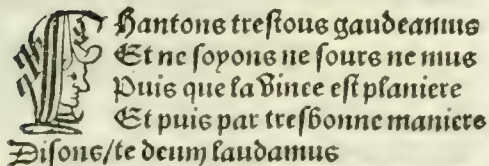 Chantons trestous gaudeamus
Et ne soyons ne sours ne mus
Puis que la Vince est planiere
Et puis par tresbonne maniere
Disons/te deum laudamus